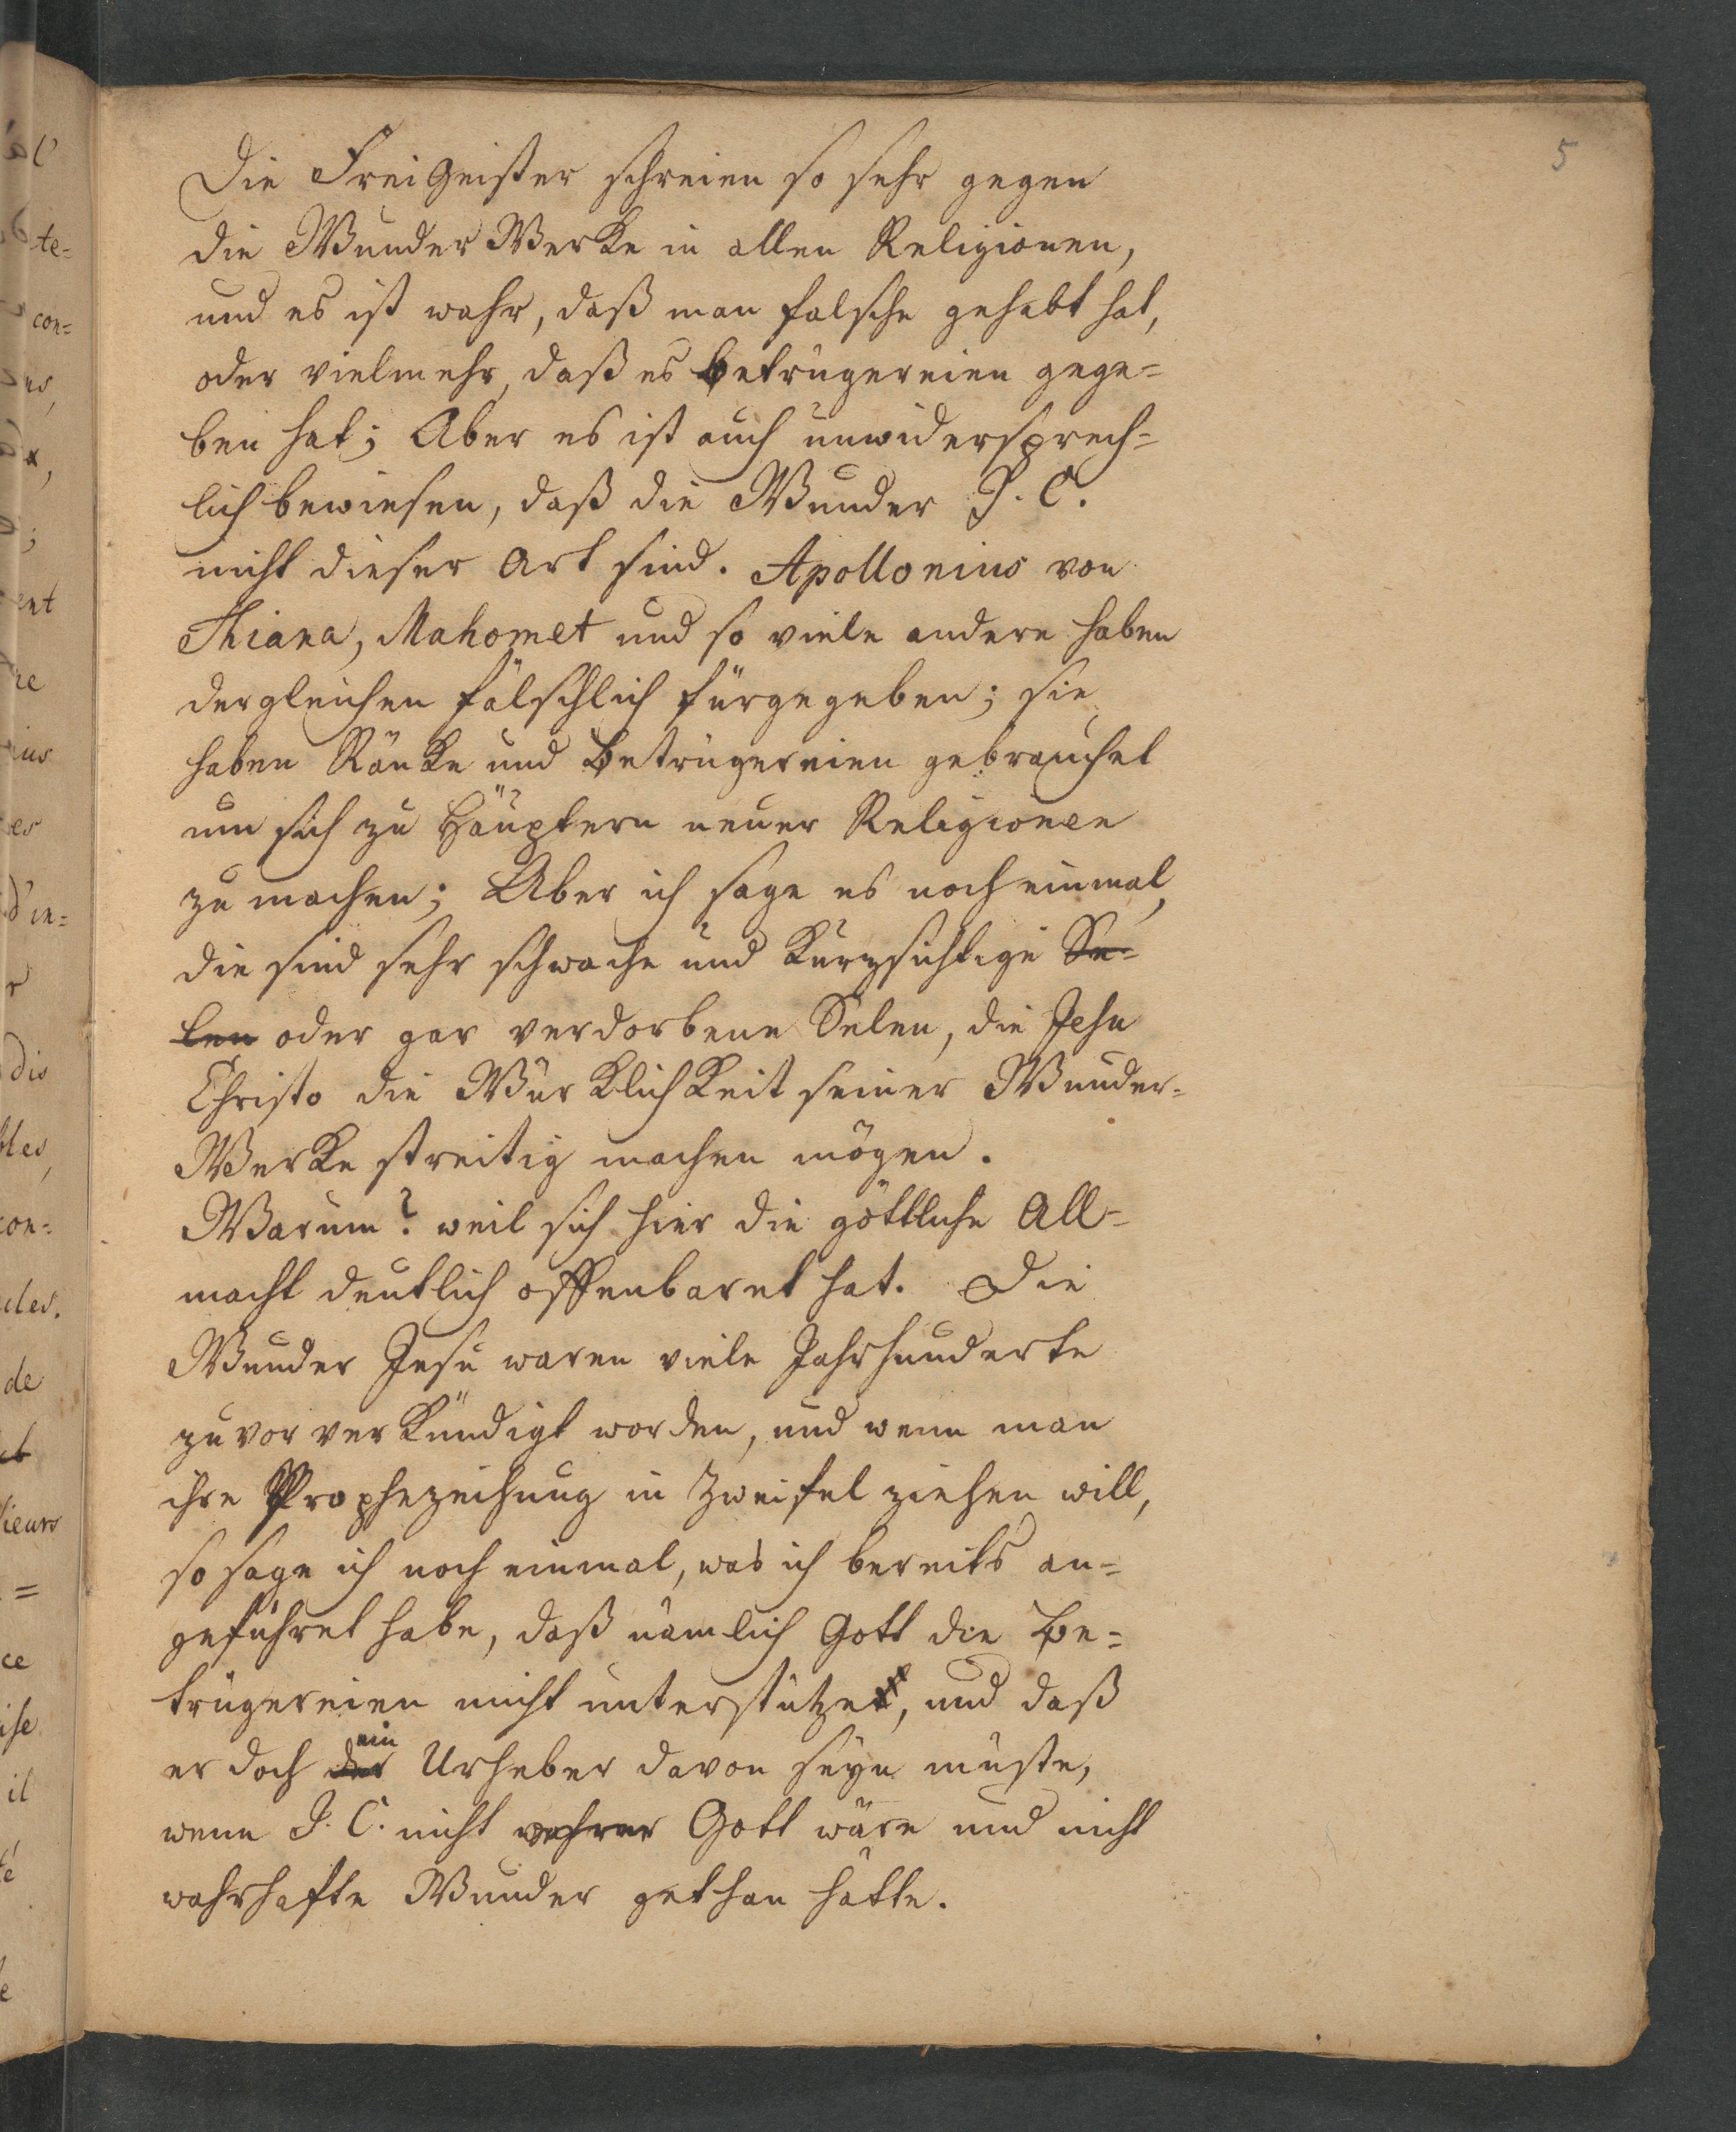 5
Die FreiGeister schreien so sehr gegen
die WunderWerke in allen Religionen,
und es ist wahr, daß man falsche gehabt hat,
oder vielmehr, daß es Betrügereien gege=
ben hat; Aber es ist auch unwidersprech=
lich bewiesen, daß die Wunder J. C.
nicht dieser Art sind. Apollonius von
Thiana, Mahomet und so viele andere haben
dergleichen fälschlich fürgegeben; sie
haben Ränke und Betrügereien gebrauchet
um sich zu Häuptern neuer Religionen
zu machen; Aber ich sage es noch einmal,
die sind sehr schwache und kurzsichtige See=
len oder gar verdorbene Selen, die Jesu
Christo die Würklichkeit seiner Wunder=
Werke streitig machen mögen.
Warum? weil sich hier die göttliche All=
macht deutlich offenbaret hat. Die
Wunder Jesu waren viele Jahrhunderte
zuvor verkündigt worden, und wenn man
ihre Prophezeihung in Zweifel ziehen will,
so sage ich noch einmal, was ich bereits an=
geführet habe, daß nämlich Gott die Be=
trügereien nicht unterstützet, und daß
er doch der ein Urheber davon seyn müste,
wenn J. C. nicht wahrer Gott wäre und nicht
wahrhafte Wunder gethan hätte.
te=
con=
ent
d'in=
dis
con=
de
sieurs
=
ce
il